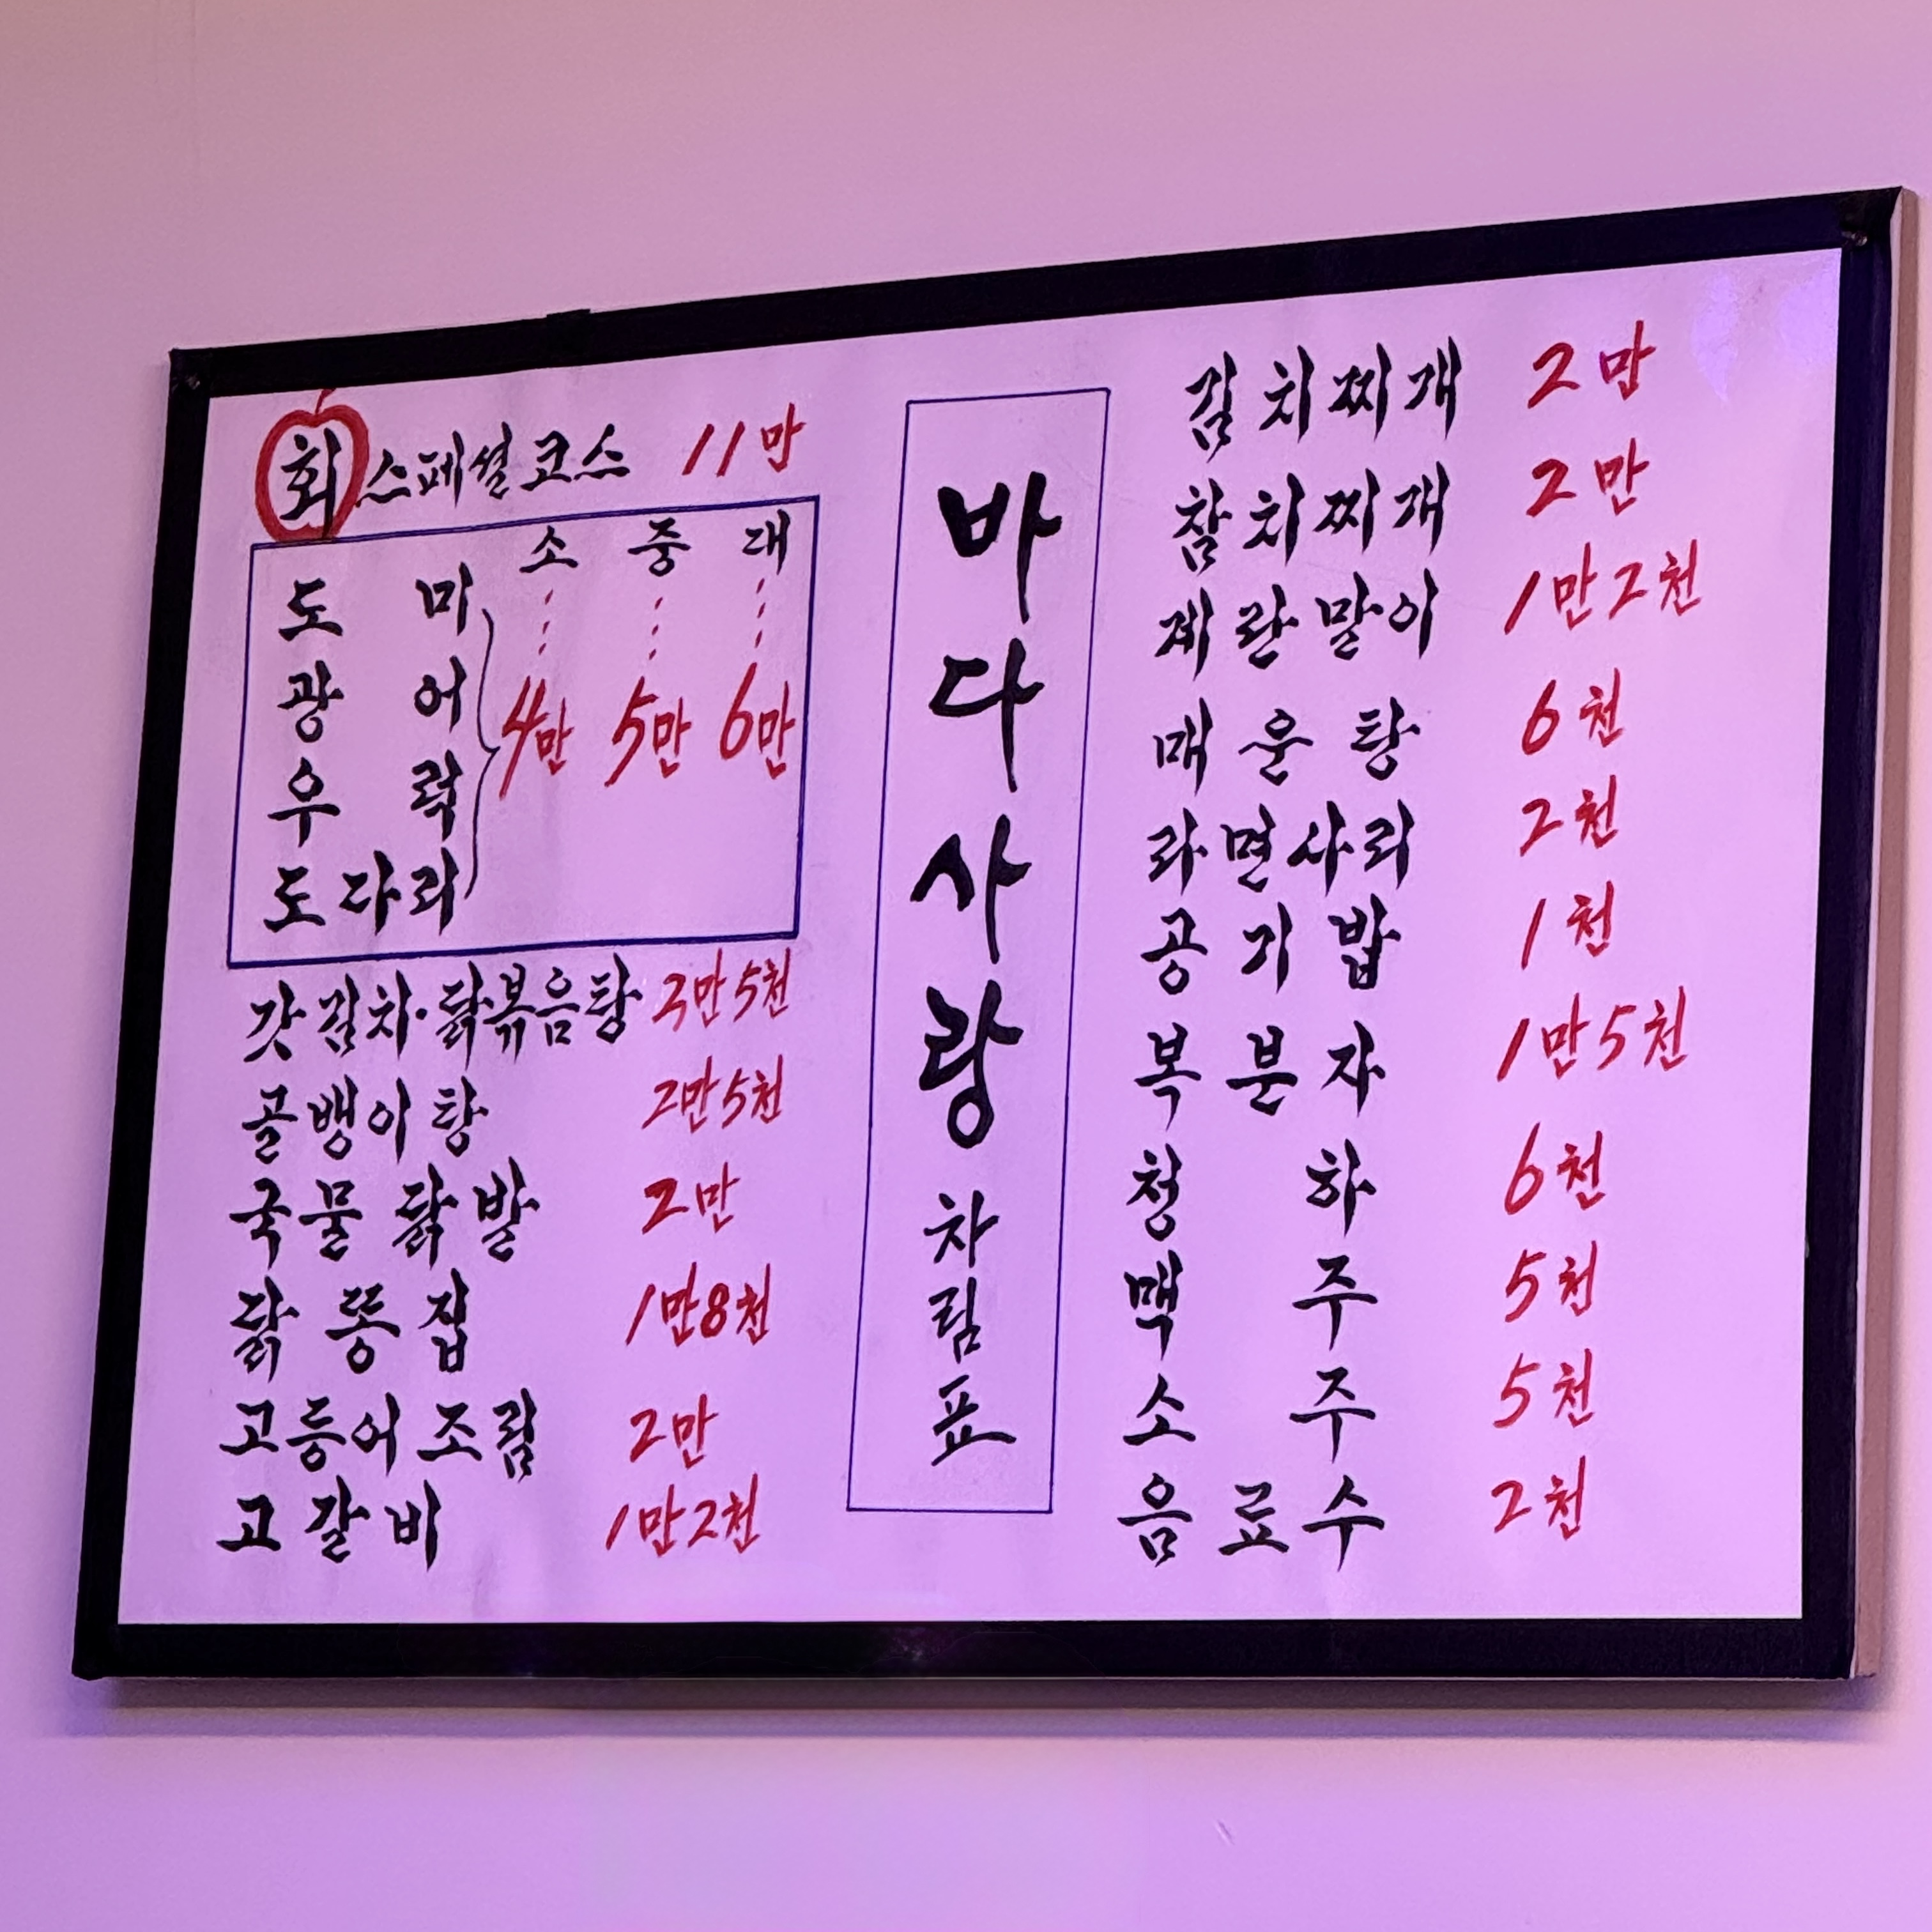 회 스페셜 코스 11만
소 중 대
도미
광어
우럭
도다리
4만 5만 6만
갓김치·닭볶음탕 2만5천
골뱅이탕 2만5천
국물 닭발 2만
닭똥집 1만8천
고등어 조림 2만
고갈비 1만2천
바다사랑 차림표
김치찌개 2만
참치찌개 2만
계란말이 1만2천
매운탕 6천
라면사리 2천
공기밥 1천
복분자 1만5천
청하 6천
맥주 5천
소주 5천
음료수 2천